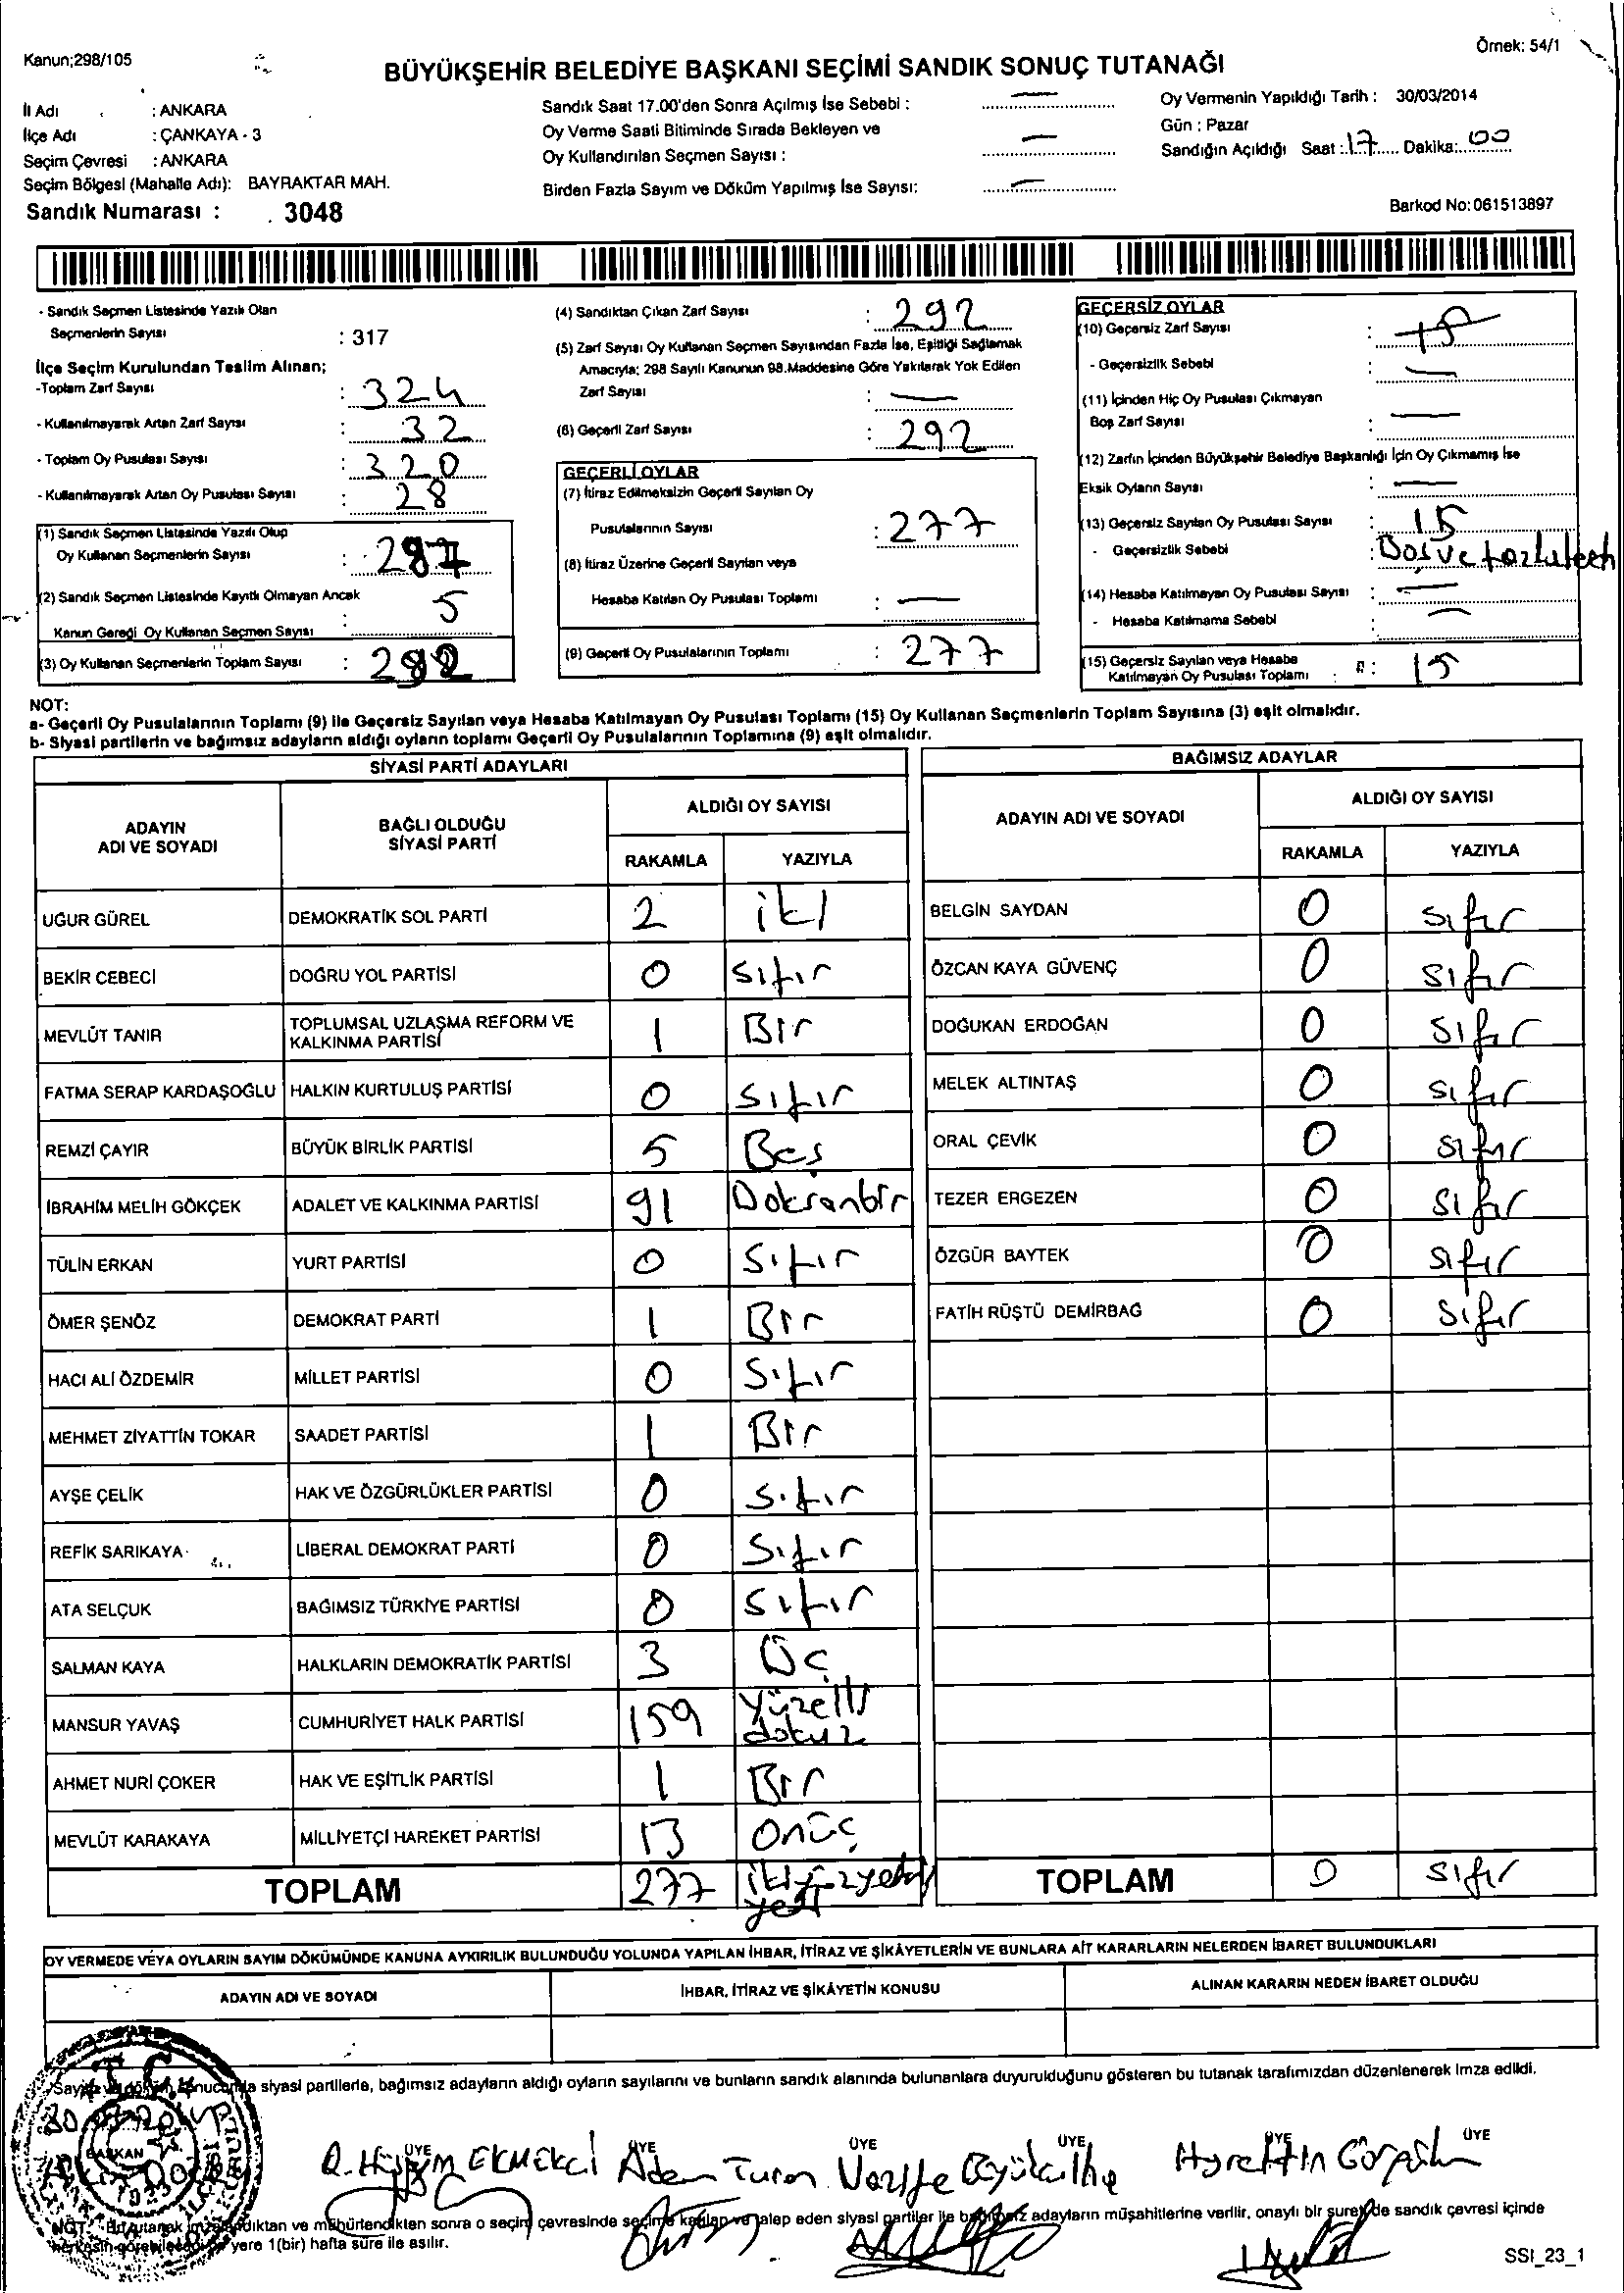 Kanun;298/105
Örnek: 54/1
BÜYÜKŞEHİR BELEDİYE BAŞKANI SEÇİMİ SANDIK SONUÇ TUTANAĞI
İl Adı : ANKARA
İlçe Adı : ÇANKAYA - 3
Seçim Çevresi : ANKARA
Seçim Bölgesi (Mahalle Adı): BAYRAKTAR MAH.
Sandık Numarası : 3048
Sandık Saat 17.00'den Sonra Açılmış İse Sebebi : —
Oy Verme Saati Bitiminde Sırada Bekleyen ve
Oy Kullandırılan Seçmen Sayısı : —
Birden Fazla Sayım ve Döküm Yapılmış İse Sayısı: —
Oy Vermenin Yapıldığı Tarih : 30/03/2014
Gün : Pazar
Sandığın Açıldığı Saat : 17 Dakika: 00
Barkod No: 061513897
- Sandık Seçmen Listesinde Yazılı Olan
Seçmenlerin Sayısı : 317
İlçe Seçim Kurulundan Teslim Alınan;
-Toplam Zarf Sayısı : 324
- Kullanılmayarak Artan Zarf Sayısı : 32
- Toplam Oy Pusulası Sayısı : 320
- Kullanılmayarak Artan Oy Pusulası Sayısı : 28
(1) Sandık Seçmen Listesinde Yazılı Olup
Oy Kullanan Seçmenlerin Sayısı : 287
(2) Sandık Seçmen Listesinde Kayıtlı Olmayan Ancak
Kanun Gereği Oy Kullanan Seçmen Sayısı : 5
(3) Oy Kullanan Seçmenlerin Toplam Sayısı : 292
(4) Sandıktan Çıkan Zarf Sayısı : 292
(5) Zarf Sayısı Oy Kullanan Seçmen Sayısından Fazla İse, Eşitliği Sağlamak
Amacıyla; 298 Sayılı Kanunun 98.Maddesine Göre Yakılarak Yok Edilen
Zarf Sayısı : —
(6) Geçerli Zarf Sayısı : 292
GEÇERLİ OYLAR
(7) İtiraz Edilmeksizin Geçerli Sayılan Oy
Pusulalarının Sayısı : 277
(8) İtiraz Üzerine Geçerli Sayılan veya
Hesaba Katılan Oy Pusulası Toplamı : —
(9) Geçerli Oy Pusulalarının Toplamı : 277
GEÇERSİZ OYLAR
(10) Geçersiz Zarf Sayısı :
- Geçersizlik Sebebi : —
(11) İçinden Hiç Oy Pusulası Çıkmayan
Boş Zarf Sayısı : —
(12) Zarfın İçinden Büyükşehir Belediye Başkanlığı İçin Oy Çıkmamış İse
Eksik Oyların Sayısı : —
(13) Geçersiz Sayılan Oy Pusulası Sayısı : 15
- Geçersizlik Sebebi : Boş ve
(14) Hesaba Katılmayan Oy Pusulası Sayısı : —
- Hesaba Katılmama Sebebi : —
(15) Geçersiz Sayılan veya Hesaba
Katılmayan Oy Pusulası Toplamı : 15
NOT:
a- Geçerli Oy Pusulalarının Toplamı (9) ile Geçersiz Sayılan veya Hesaba Katılmayan Oy Pusulası Toplamı (15) Oy Kullanan Seçmenlerin Toplam Sayısına (3) eşit olmalıdır.
b- Siyasi partilerin ve bağımsız adayların aldığı oyların toplamı Geçerli Oy Pusulalarının Toplamına (9) eşit olmalıdır.
SİYASİ PARTİ ADAYLARI
ADAYIN ADI VE SOYADI
BAĞLI OLDUĞU SİYASİ PARTİ
ALDIĞI OY SAYISI
RAKAMLA YAZIYLA
UĞUR GÜREL DEMOKRATİK SOL PARTİ 2 iki
BEKİR CEBECİ DOĞRU YOL PARTİSİ 0 Sıfır
MEVLÜT TANIR TOPLUMSAL UZLAŞMA REFORM VE KALKINMA PARTİSİ 1 Bir
FATMA SERAP KARDAŞOĞLU HALKIN KURTULUŞ PARTİSİ 0 Sıfır
REMZİ ÇAYIR BÜYÜK BİRLİK PARTİSİ 5 Beş
İBRAHİM MELİH GÖKÇEK ADALET VE KALKINMA PARTİSİ 91 Doksanbir
TÜLİN ERKAN YURT PARTİSİ 0 Sıfır
ÖMER ŞENÖZ DEMOKRAT PARTİ 1 Bir
HACI ALİ ÖZDEMİR MİLLET PARTİSİ 0 Sıfır
MEHMET ZİYATTİN TOKAR SAADET PARTİSİ 1 Bir
AYŞE ÇELİK HAK VE ÖZGÜRLÜKLER PARTİSİ 0 Sıfır
REFİK SARIKAYA LİBERAL DEMOKRAT PARTİ 0 Sıfır
ATA SELÇUK BAĞIMSIZ TÜRKİYE PARTİSİ 0 Sıfır
SALMAN KAYA HALKLARIN DEMOKRATİK PARTİSİ 3 Üç
MANSUR YAVAŞ CUMHURİYET HALK PARTİSİ 159 Yüzelli dokuz
AHMET NURİ ÇOKER HAK VE EŞİTLİK PARTİSİ 1 Bir
MEVLÜT KARAKAYA MİLLİYETÇİ HAREKET PARTİSİ 13 Onüç
TOPLAM 277 ikiyüzyetmiş yedi
BAĞIMSIZ ADAYLAR
ADAYIN ADI VE SOYADI
ALDIĞI OY SAYISI
RAKAMLA YAZIYLA
BELGİN SAYDAN 0 Sıfır
ÖZCAN KAYA GÜVENÇ 0 Sıfır
DOĞUKAN ERDOĞAN 0 Sıfır
MELEK ALTINTAŞ 0 Sıfır
ORAL ÇEVİK 0 Sıfır
TEZER ERGEZEN 0 Sıfır
ÖZGÜR BAYTEK 0 Sıfır
FATİH RÜŞTÜ DEMİRBAĞ 0 Sıfır
TOPLAM 0 Sıfır
OY VERMEDE VEYA OYLARIN SAYIM DÖKÜMÜNDE KANUNA AYKIRILIK BULUNDUĞU YOLUNDA YAPILAN İHBAR, İTİRAZ VE ŞİKÂYETLERİN VE BUNLARA AİT KARARLARIN NELERDEN İBARET BULUNDUKLARI
ADAYIN ADI VE SOYADI
İHBAR, İTİRAZ VE ŞİKÂYETİN KONUSU
ALINAN KARARIN NEDEN İBARET OLDUĞU
siyasi partilerle, bağımsız adayların aldığı oyların sayılarını ve bunların sandık alanında bulunanlara duyurulduğunu gösteren bu tutanak tarafımızdan düzenlenerek imza edildi.
T.C.
BAŞKAN
ÜYE ÜYE ÜYE ÜYE ÜYE ÜYE
EKMEKCİ Adem Turan
sonra o seçim çevresinde seçime katılan ve talep eden siyasi partiler ile bağımsız adayların müşahitlerine verilir, onaylı bir sureti de sandık çevresi içinde
yere 1(bir) hafta süre ile asılır.
SSI_23_1